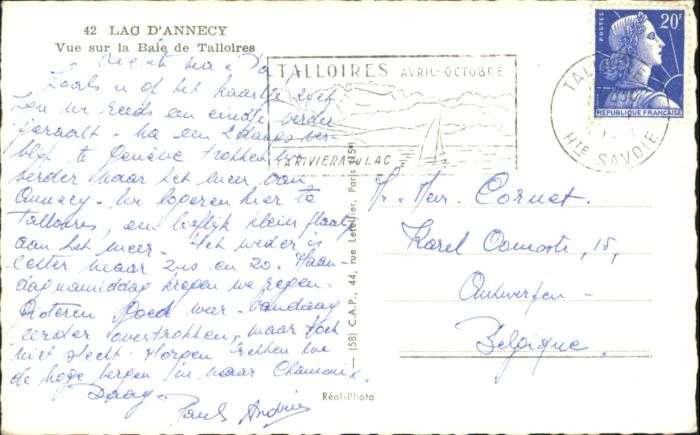 42 LAC D'ANNECY
Vue sur la Baie de Talloires
Zoals u op het kaartje ziet
zijn we reeds een eindje verder
geraakt - Na een 2 daags ver-
blijf te Genève trokken we
verder naar het meer van
Annecy - We logeren hier te
Talloires, een lieflijk klein plaatsje
aan het meer - Het weder is
echter maar zus en zo. Maan-
dagnamiddag kregen we regen -
Gisteren goed weer - Vandaag
eerder overtrokken, maar toch
niet slecht - Morgen trekken we
de hoge bergen in naar Chamonix.
Daag -
Paul Andrée
TALLOIRES AVRIL-OCTOBRE
RIVIERA DU LAC
TALLOIRES
Hte SAVOIE
POSTES
20F
REPUBLIQUE FRANCAISE
(58) C.A.P., 44, rue Letellier, Paris (15e)
Réal-Photo
M. Mevr. Cornet
Karel Oomsstr, 15,
Antwerpen -
Belgique.